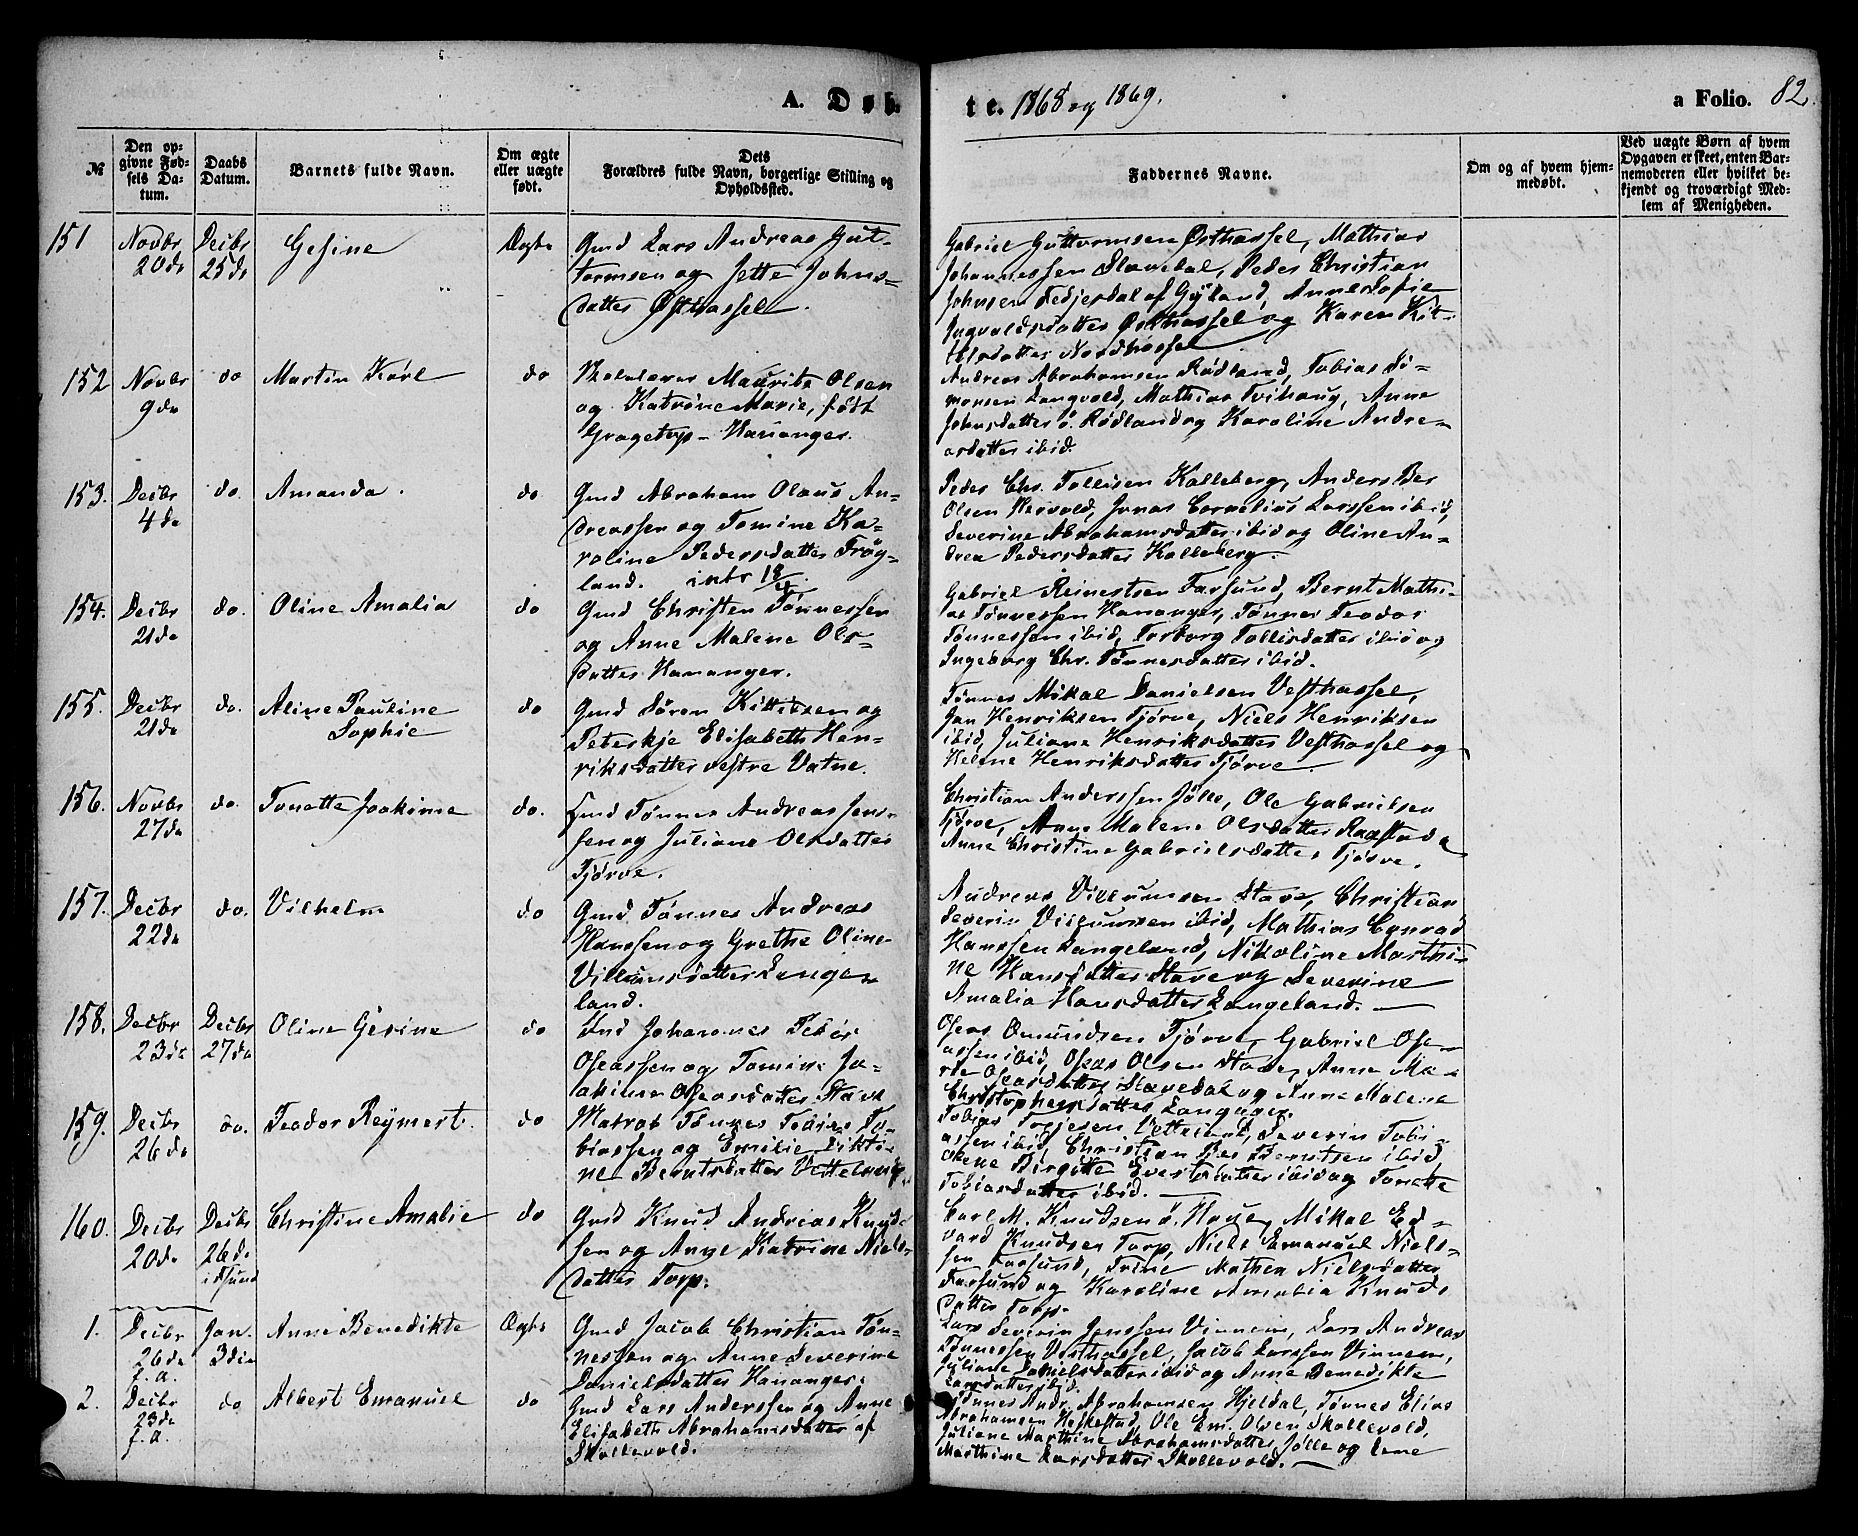 A. Døb
te. 1868 og 1869.
a Folio. 82.
№
Den op-
givne Fød-
sels Da-
tum.
Daabs
Datum.
Barnets fulde Navn.
Om ægte
eller uægte
født.
Dets
Forældres fulde Navn, borgerlige Stilling og
Opholdssted.
Faddernes Navne.
Om og af hvem hjem-
medøbt.
Ved uægte Børn af hvem
Opgaven er skeet, enten Bar-
nemoderen eller hvilket be-
kjendt og troværdigt Med-
lem af Menigheden.
151 Novbr 20de
Decbr 25de
Gesine
Ægte
Gmd Lars Andreas Gut-
tormsen og Jette Johns-
datter Østhassel.
Gabriel Guttormsen Østhassel, Mathias
Johannessen Slævdal, Peder Christian
Johnsen Fedjesdal af Gyland, Anne Sofie
Ingvaldsdatter Østhassel og Karen Kit-
tilsdatter Nordhassel
152 Novbr 9de
do
Martin Karl
do
Skolelærer Mauritz Olsen
og Katrine Marie, født
Gragetop - Hananger.
Andreas Abrahamsen Rødland, Tobias Si-
monsen Langvold, Mathias Tvihaug, Anne
Johnsdatter ø. Rødland og Karoline Andre-
asdatter ibid.
153. Decbr 4de
do.
Amanda.
do
Gmd Abraham Olaus An-
dreassen og Tomine Ka-
roline Pedersdatter Frøg-
land. intr 18/4.
Peder Chr. Tollisen Kalleberg, Anders Ber
Olsen, Jonas Cornelius Larssen ibid,
Severine Abrahamsdatter ibid og Oline An-
drea Pedersdatter Kalleberg.
154. Decbr 21de
do.
Oline Amalia
do
Gmd Christen Tønnessen
og Anne Malene Ols-
datter Hananger.
Gabriel Reinertsen Farsund, Bernt Mathi-
as Tønnessen Hananger, Tønnes Teodor
Tønnessen ibid, Torborg Tollisdatter ibid og
Ingeborg Chr. Tønnesdatter ibid.
155. Decbr 21de
do.
Aline Pauline
Sophie
do
Gmd Søren Kittilsen og
Peterskje Elisabeth Hen-
riksdatter vestre Vatne.
Tønnes Mikal Danielsen Vesthassel,
Jan Henriksen Tjørve, Niels Henriksen
ibid, Juliane Henriksdatter Vesthassel og
Helene Henriksdatter Tjørve.
156. Novbr 27de
do.
Tonette Joakime
do.
Gmd Tønnes Andreas Jens-
sen og Juliane Olsdatter
Tjørve.
Christian Anderssen Jølle, Ole Gabrielsen
Tjørve, Anne Malene Olsdatter Raastad,
Anne Christine Gabrielsdatter Tjørve.
157. Decbr 22de
do.
Vilhelm
do
Gmd Tønnes Andreas
Hanssen og Grethe Oline
Villumsdatter Lange-
land.
Andreas Villumsen Stave, Christian
Severin Villumsen ibid, Mathias Conrad
Hanssen Langeland, Nikoline Marthi-
ne Hansdatter Stave og Severine
Amalia Hansdatter Langeland.
158. Decbr 23de
Decbr 27de
Oline Gesine
do
Gmd Johannes Tobias
Oseassen og Tomine Jo-
akime Oseasdatter Stave
Oseas Omundsen Tjørve, Gabriel Ose-
assen ibid, Oseas Olsen Stave, Anne Ma-
rie Oseasdatter Slævdal og Anne Malene
Christophersdatter Langaker.
159. Decbr 26de
do.
Teodor Reymert.
do
Matros Tønnes Tobias To-
biassen og Emilie Dikti-
ne Berntsdatter Vetteland.
Tobias Torjesen Vetteland, Severin Tobi-
assen ibid, Christian Ber Berntsen ibid
Olene Birgitte Evertsdatter ibid og Tonette
Tobiasdatter ibid.
160. Decbr 20de
Decbr 26de
i Fsund
Christine Amalie
do
Gmd Knud Andreas Knud-
sen og Anne Katrine Niels-
datter Torp.
Carl M. Knudsen ø. Haue, Mikal Ed-
vard Knudsen Torp, Niels Emanuel Niels-
sen Farsund, Trine Mathea Nielsdatter
Farsund og Karoline Amalia Knuds-
datter Torp.
1. Decbr 26de f.A.
Jan. 3die
Anne Benedikte
Ægte
Gmd Jacob Christian Tøn-
nessen og Anne Severine
Danielsdatter Hananger.
Lars Severin Jenssen Vinnem, Lars Andreas
Tønnessen Vesthassel, Jacob Larssen Vinnem,
Juliane Danielsdatter ibid og Anne Benedikte
Larsdatter ibid.
2. Decbr 23de f.A.
do
Albert Emanuel
do
Gmd Lars Anderssen og Anne
Elisabeth Abrahamsdatter af
Skollevold.
Tønnes Andr. Abrahamsen Hjeldal, Tønnes Elias
Abrahamsen Heskestad, Ole Em. Olsen Skollevold,
Juliane Marthine Abrahamsdatter Jølle og Lene
Marthine Larsdatter Skollevold.